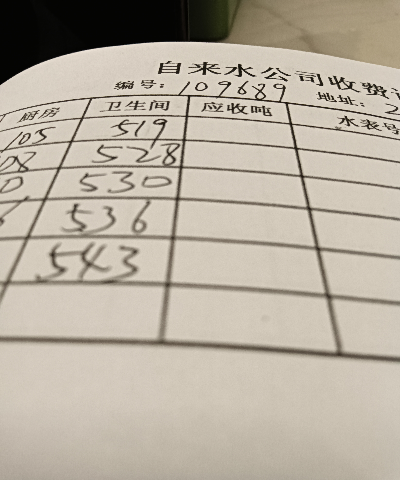 自来水公司收费
编号: 109689 地址: 2
厨房 卫生间 应收吨 水表号
105 519
08 528
0 530
6 536
543